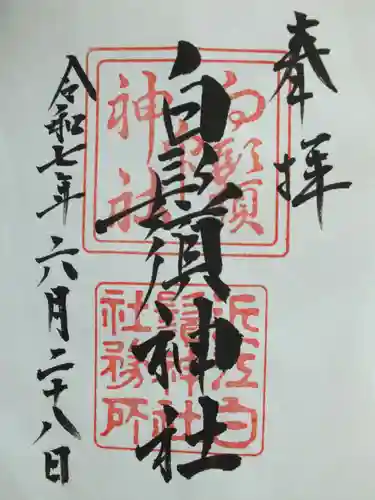 奉拝
白鬚神社
令和七年六月二十八日
白鬚神社
近江白鬚神社社務所